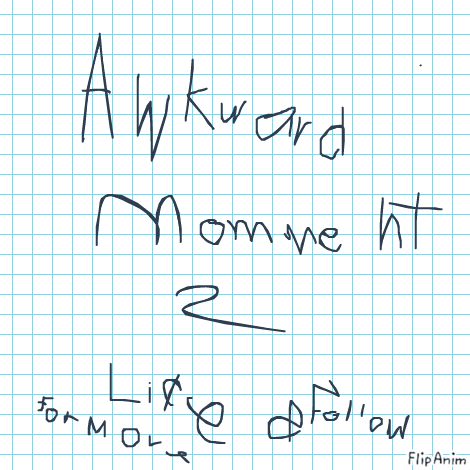 Awkward
MommenT
2
LiKe & Follow
for More
FlipAnim